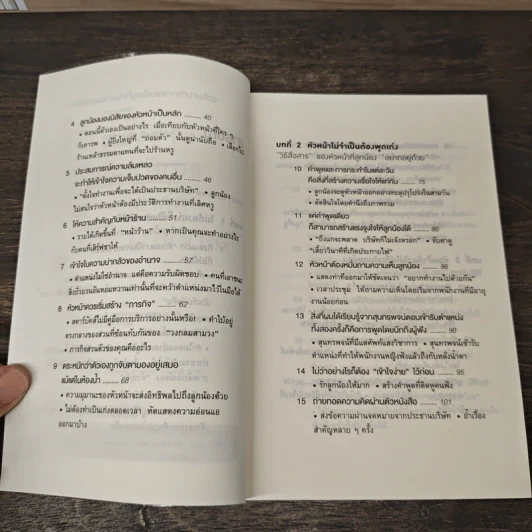 4 ลูกน้องมองนิสัยของหัวหน้าเป็นหลัก ........ 40
• ตอนนี้ตัวเองเป็นอย่างไร เมื่อเทียบกับหัวหน้าที่ใคร ๆ
ก็เคารพ • ผู้ยิ่งใหญ่ที่ "ถ่อมตัว" นั้นดูน่านับถือ • เลือกไป
ร้านเหล้าธรรมดาแทนที่จะไปร้านหรู
5 ประสบการณ์ความล้มเหลว
จะทำให้เข้าใจความเจ็บปวดของคนอื่น ........ 46
• "ตั้งใจทำงานเพื่อจะได้เป็นประธานบริษัท" • ลูกน้อง
ไม่สนใจว่าหัวหน้าต้องมีประวัติการทำงานที่เลิศหรู
6 ให้ความสำคัญกับหน้าร้าน ........ 51
• รายได้เกิดขึ้นที่ "หน้าร้าน" • หากเป็นคุณจะทำอย่างไร
กับคนที่เสิร์ฟชาให้
7 เข้าใจในความน่ากลัวของอำนาจ ........ 57
• ตำแหน่งไม่ใช่อำนาจ แต่คือความรับผิดชอบ • คนที่เอาชนะ
สิ่งยั่วยวนอันหอมหวานเท่านั้นที่จะคว้าตำแหน่งมาไว้ในมือได้
8 หัวหน้าควรเริ่มสร้าง "ภารกิจ" ........ 62
• สตาร์บัคส์ไม่มีคู่มือการบริการอย่างนั้นหรือ! • ทำไปอยู่
ตรงกลางของส่วนที่ซ้อนทับกันของ "วงกลมสามวง"
• ภารกิจส่วนตัวของคุณคืออะไร
9 ตระหนักว่าตัวเองถูกจับตามองอยู่เสมอ
แม้แต่ในห้องน้ำ ........ 68
• ความมุมานะของหัวหน้าจะส่งอิทธิพลไปถึงลูกน้องด้วย
• ไม่ต้องทำเป็นเก่งตลอดเวลา หัดแสดงความอ่อนแอ
ออกมาบ้าง
บทที่ 2 หัวหน้าไม่จำเป็นต้องพูดเก่ง
"วิธีสื่อสาร" ของหัวหน้าที่ลูกน้อง "อยากอยู่ด้วย"
10 คำพูดและการกระทำในแต่ละวัน
คือสิ่งที่สร้างความเชื่อใจให้แก่กัน ........ 75
• ลูกน้องจะดูหัวหน้าออกอย่างทะลุปรุโปร่งในสามวัน
• ตัดสินใจโดยคำนึงถึงภาพรวม
11 แค่คำพูดเดียว
ก็สามารถสร้างแรงจูงใจให้ลูกน้องได้ ........ 80
• "ถึงแกจะพลาด บริษัทก็ไม่เจ๊งหรอก" • จับตาดู
"เสี้ยววินาทีที่เกิดประกายไฟ"
12 หัวหน้าต้องหมั่นถามความเห็นลูกน้อง ........ 86
• แสดงท่าทีออกมาให้ชัดเจนว่า "อยากทำงานไปด้วยกัน"
• เวลาประชุม ให้ถามความเห็นโดยเริ่มจากพนักงานที่มีอายุ
งานน้อยก่อน
13 สิ่งที่ผมได้เรียนรู้จากสุนทรพจน์ตอนเข้ารับตำแหน่ง
ทั้งสองครั้งก็คือการพูดโดยนึกถึงผู้ฟัง ........ 90
• สุนทรพจน์ที่มีแต่ศัพท์แสงวิชาการ • สุนทรพจน์เข้ารับ
ตำแหน่งที่ทำให้พนักงานหญิงฟังแล้วถึงกับหลั่งน้ำตา
14 ไม่ว่าอย่างไรก็ต้อง "เข้าใจง่าย" ไว้ก่อน ........ 95
• รักลูกน้องให้มาก • สร้างคำพูดที่ติดหูคนฟัง
15 ถ่ายทอดความคิดผ่านตัวหนังสือ ........ 101
• ส่งข้อความผ่านจดหมายจากประธานบริษัท • ย้ำเรื่อง
สำคัญหลาย ๆ ครั้ง